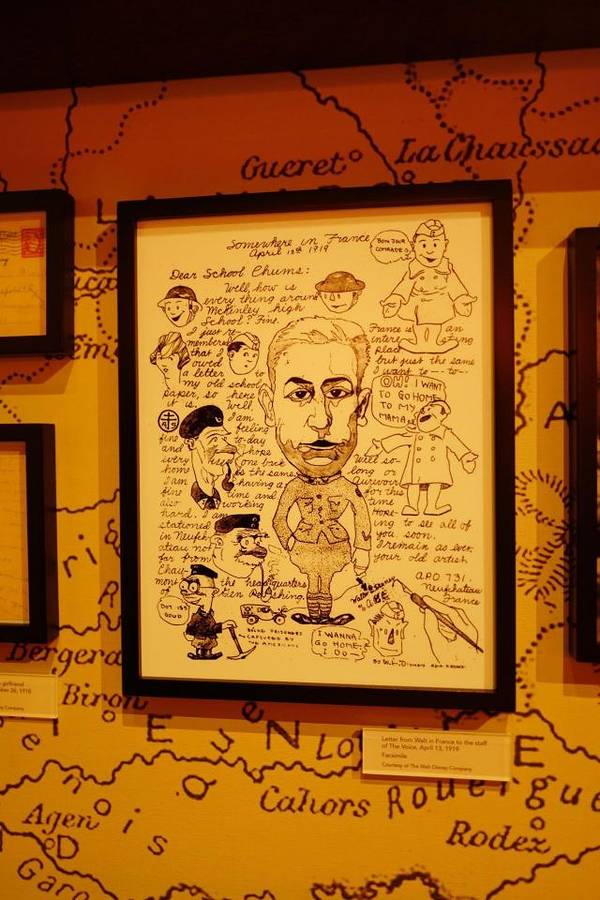 Gueret
La Chaussa
Somewhere in France
April 13th 1919
BON JOUR
COMRADE
Dear School Chums:
Well, how is
every thing around
McKinley high
School? Fine.
I just re-
membered
that I
owed
a letter to
my old school
paper, so here
it is. Well,
I am
feeling
fine to-day
and hope
every one back
home is the same
I am having a
fine time and
also working
hard. I am
stationed
in Neufch-
ateau not
far from
Chau-
mont the headquarters
of Pershing.
France is an
interesting
place
but just the same
I want to -- to --
OH! I WANT
TO GO HOME
TO MY
MAMA
Well so-
long or
for this
time
Hop-
ing to see all of
you, soon.
I remain as ever,
your old artist
A.P.O 731.
Neufchateau
France
DOT ISS
GOOD
BEING PRISONERS
CAPTURED BY
THE AMERICANS
I WANNA
GO HOME
I DO
Bergera
Biron
girlfriend
Letter from Walt in France to the staff
of The Voice, April 13, 1919
Facsimile
Courtesy of The Walt Disney Company
E S N
E
Cahors
Rouergue
Agenois
Rodez
Garo